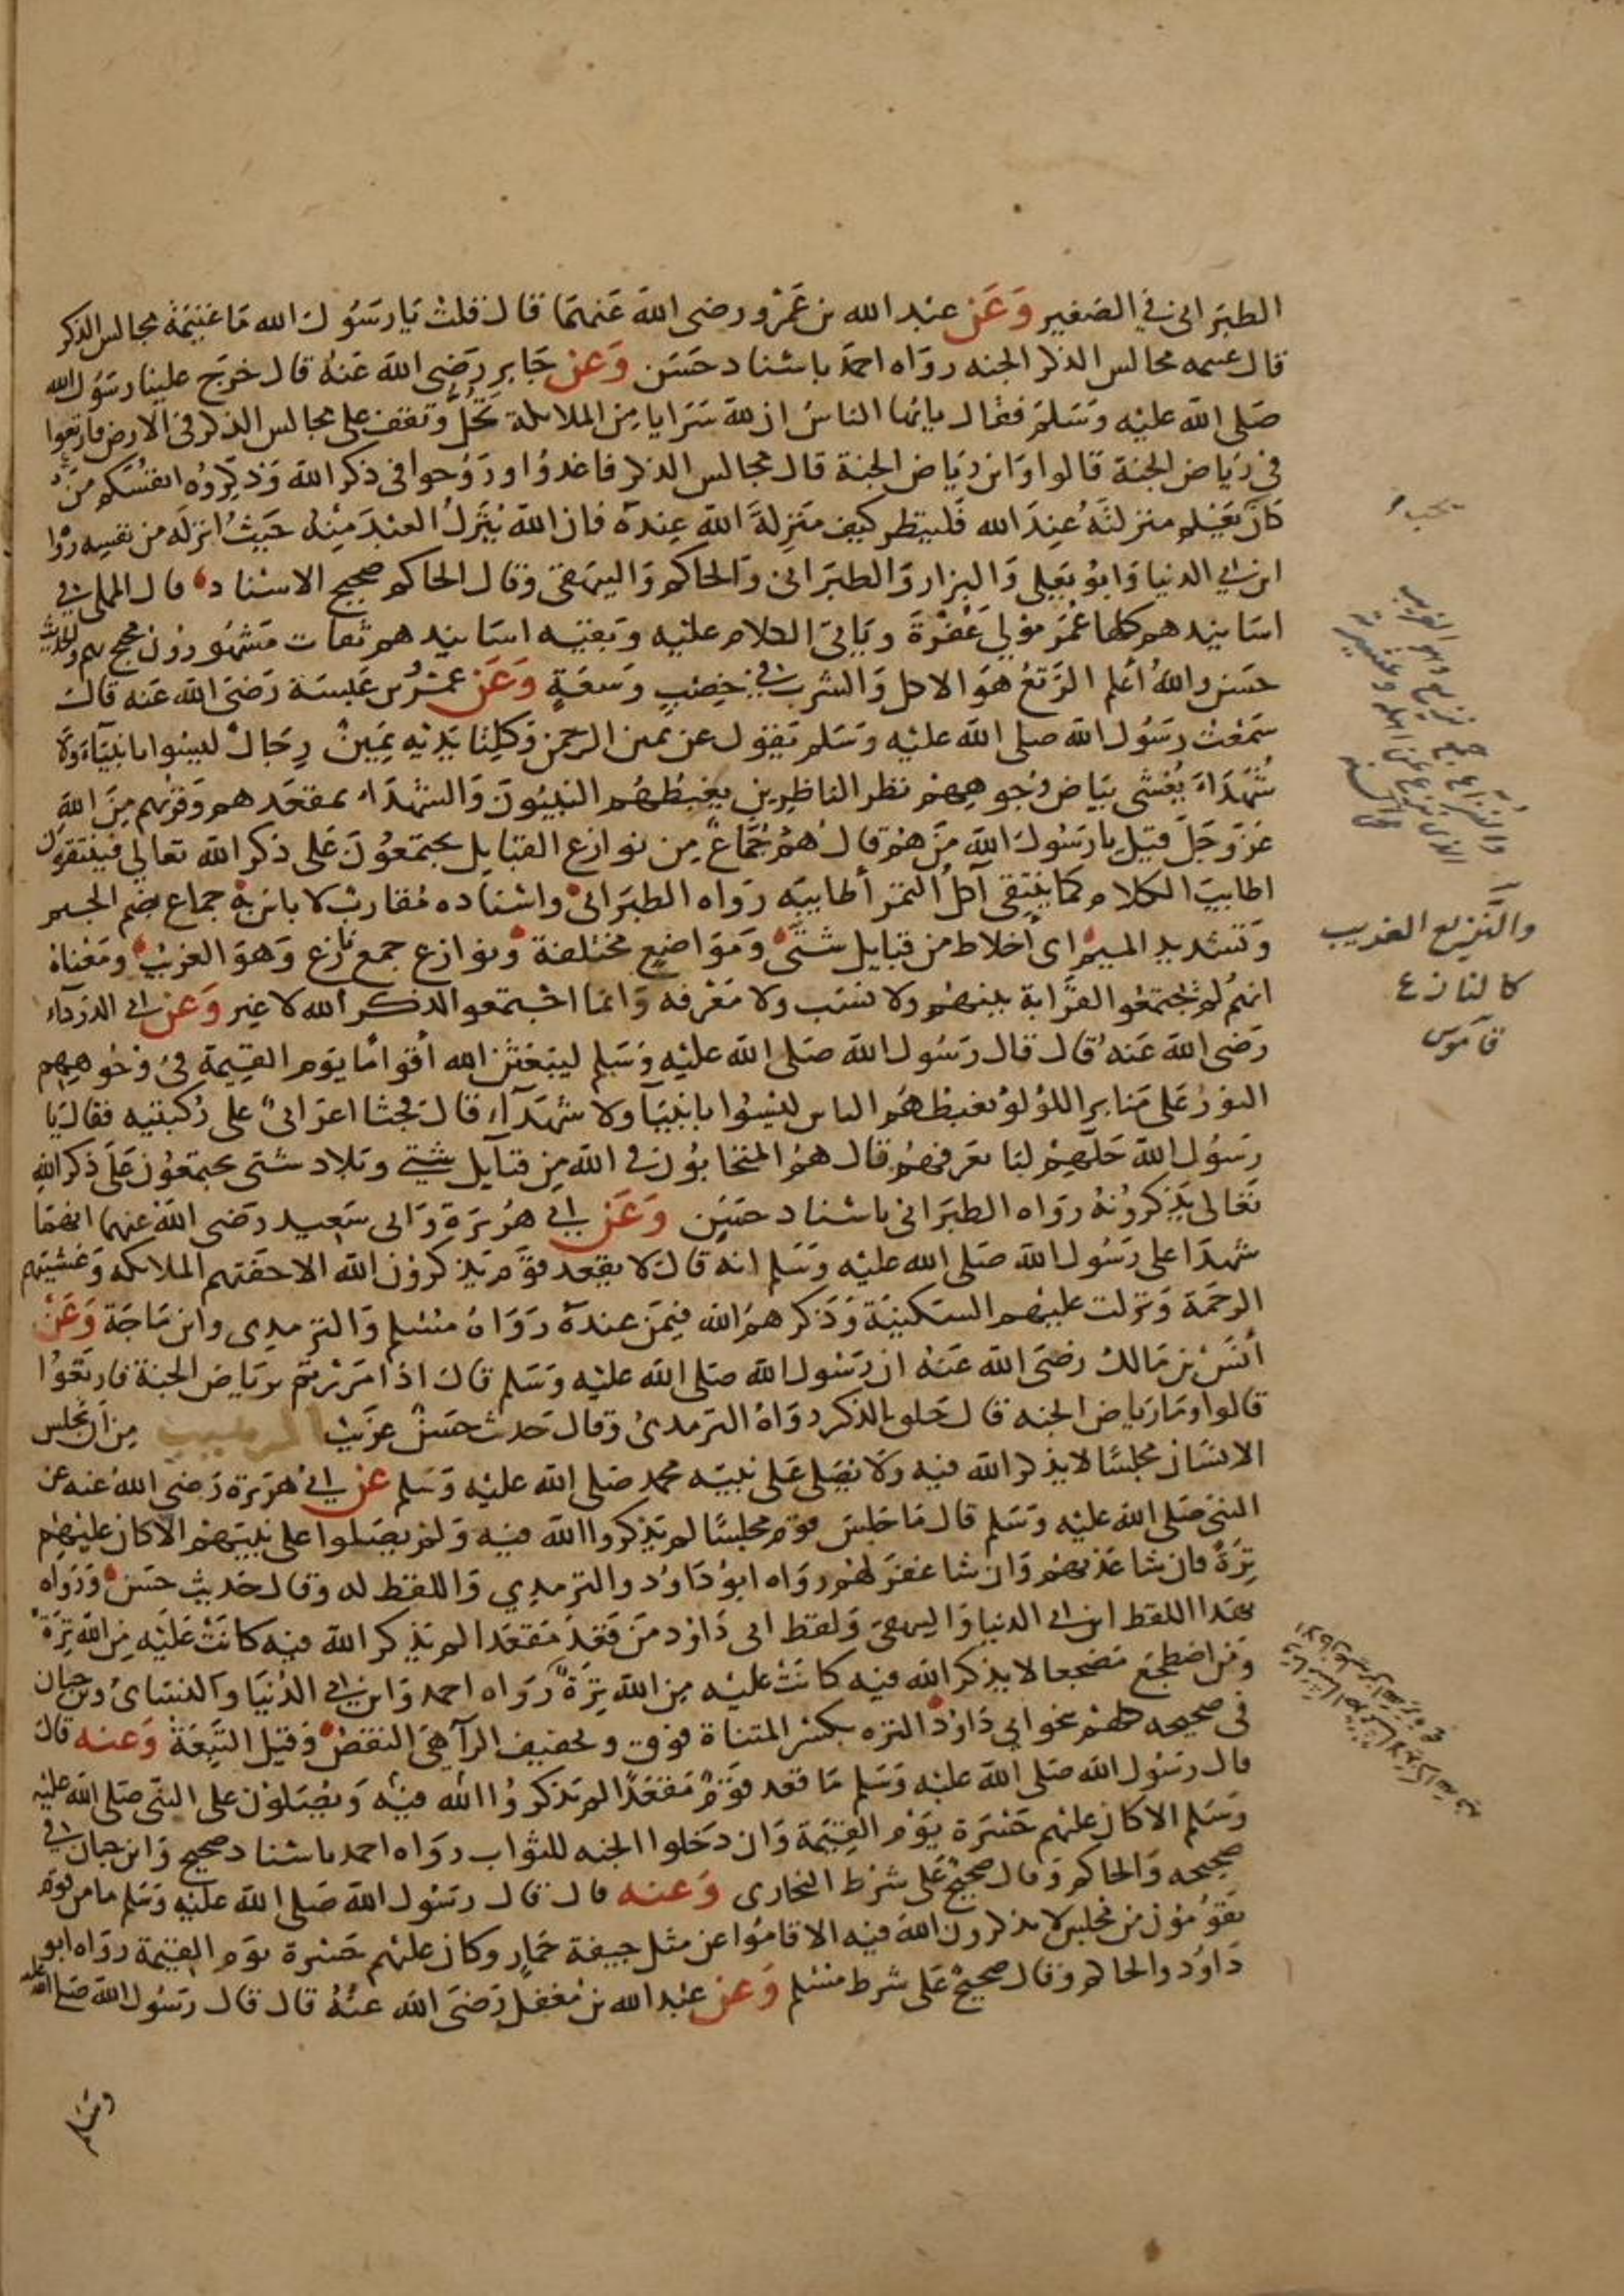 الطبراني في الصغير وعن عبد الله بن عمرو رضى الله عنهما قال قلت يا رسول الله ما غنيمة مجالس الذكر
قال غنيمه مجالس الذكر الجنه رواه احمد باسناد حسن وعن جابر رضى الله عنه قال خرج علينا رسول الله
صلى الله عليه وسلم فقال يايها الناس ان لله سرايا من الملائكة تحل وتقف على مجالس الذكر فى الارض فارتعوا
فى رياض الجنة قالوا واين رياض الجنة قال مجالس الذكر فاغدوا وروحوا فى ذكر الله وذكروه انفسكم من
كان يعلم منزلته عند الله فلينظر كيف منزلة الله عنده فان الله ينزل العبد منه حيث انزله من نفسه روا
ابن ابي الدنيا وابو يعلى والبزار والطبرانى والحاكم والبيهقى وقال الحاكم صحيح الاسناد قال المملى في
اسانيدهم كلها عمر مولى عفرة وياتى الكلام عليه وبقيه اسانيدهم ثقات مشهورون محتج بهم والحديث
حسن والله أعلم الرتع هو الاكل والشرب في خصب وسعة وعن عمرو بن عبسة رضى الله عنه قال
سمعت رسول الله صلى الله عليه وسلم يقول عن يمين الرحمن وكلتا يديه يمين رجال ليسوا بانبياء ولا
شهداء يغشى بياض وجوههم نظر الناظرين يغبطهم النبيون والشهداء بمقعدهم وقربهم من الله
عز وجل قيل يا رسول الله من هم قال هم جماع من نوازع القبايل يجتمعون على ذكر الله تعالى فينتقون
اطايب الكلام كما ينتقى آكل التمر أطايبه رواه الطبرانى واسناده مقارب لا باس به جماع بضم الجيم
وتشديد الميم اى أخلاط من قبايل شتى ومواضع مختلفة ونوازع جمع نازع وهو الغريب ومعناه
انهم لم يجتمعوا لقرابة بينهم ولا نسب ولا معرفه وانما اجتمعوا لذكر الله لا غير وعن ابى الدرداء
رضى الله عنه قال قال رسول الله صلى الله عليه وسلم ليبعثن الله أقواما يوم القيمة فى وجوههم
النور على منابر اللؤلؤ يغبطهم الناس ليسوا بانبيا ولا شهدآء قال فجثا اعرابى على ركبتيه فقال يا
رسول الله حلهم لنا نعرفهم قال هم المتحابون فى الله من قبايل شتى وبلاد شتى يجتمعون على ذكر الله
تعالى يذكرونه رواه الطبرانى باسناد حسن وعن ابي هريرة وابى سعيد رضى الله عنهما انهما
شهدا على رسول الله صلى الله عليه وسلم انه قال لا يقعد قوم يذكرون الله الا حفتهم الملائكه وغشيتهم
الرحمة ونزلت عليهم السكينة وذكرهم الله فيمن عنده رواه مسلم والترمدى وابن ماجة وعن
أنس بن مالك رضى الله عنه ان رسول الله صلى الله عليه وسلم قال اذا مررتم برياض الجنة فارتعوا
قالوا وما رياض الجنه قال حلق الذكر رواه الترمدى وقال حدث حسن غريب الترهيب من ان يجلس
الانسان مجلسا لا يذكر الله فيه ولا يصلى على نبيه محمد صلى الله عليه وسلم عن ابي هريرة رضى الله عنه عن
النبى صلى الله عليه وسلم قال ما جلس قوم مجلسا لم يذكروا الله فيه ولم يصلوا على نبيهم الا كان عليهم
ترة فان شا عذبهم وان شا غفر لهم رواه ابو داود والترمدي واللفظ له وقال حديث حسن ورواه
بهدا اللفظ ابن ابى الدنيا والبيهقى ولفظ ابى داود من قعد مقعدا لم يذكر الله فيه كانت عليه من الله ترة
ومن اضطجع مضجعا لا يذكر الله فيه كانت عليه من الله ترة رواه احمد وابن ابي الدنيا والنساى وابن حبان
فى صحيحه كلهم بنحو ابى داود التره بكسر المتناة فوق وتخفيف الرآ هى النقص وقيل التبعة وعنه قال
قال رسول الله صلى الله عليه وسلم ما قعد قوم مقعدا لم يذكروا الله فيه ويصلون على النبى صلى الله عليه
وسلم الا كان عليهم حسرة يوم القيمة وان دخلوا الجنه للثواب رواه احمد باسناد صحيح وابن حبان فى
صحيحه والحاكم وقال صحيح على شرط البخارى وعنه قال قال رسول الله صلى الله عليه وسلم ما من قوم
يقومون من مجلس لا يذكرون الله فيه الا قاموا عن مثل جيفة حمار وكان عليهم حسرة يوم القيمة رواه ابو
داود والحاكم وقال صحيح على شرط مسلم وعن عبد الله بن مغفل رضى الله عنه قال قال رسول الله صلى الله عليه
والنزيع الغريب
كالنازع
قاموس
وسلم